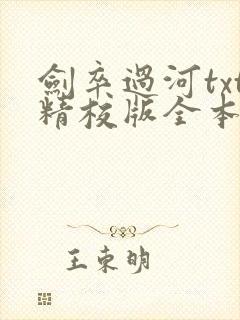 劍卒過河txt
精校版全本
王東明